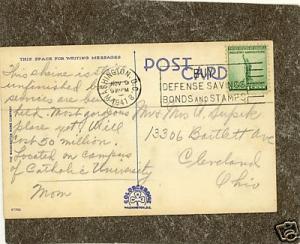 THIS SPACE FOR WRITING MESSAGES
POST CARD
WASHINGTON, D.C.
NOV 9
PM
1941
BUY
DEFENSE SAVINGS
BONDS AND STAMPS
This shrine is still
unfinished but
services are being
held. Most gorgeous
place yet. Will
cost 50 million.
Located on campus
of Catholic University
Mom
Mr + Mrs A.
13306 Bartlett Ave
Cleveland
Ohio
WASHINGTON, D.C.